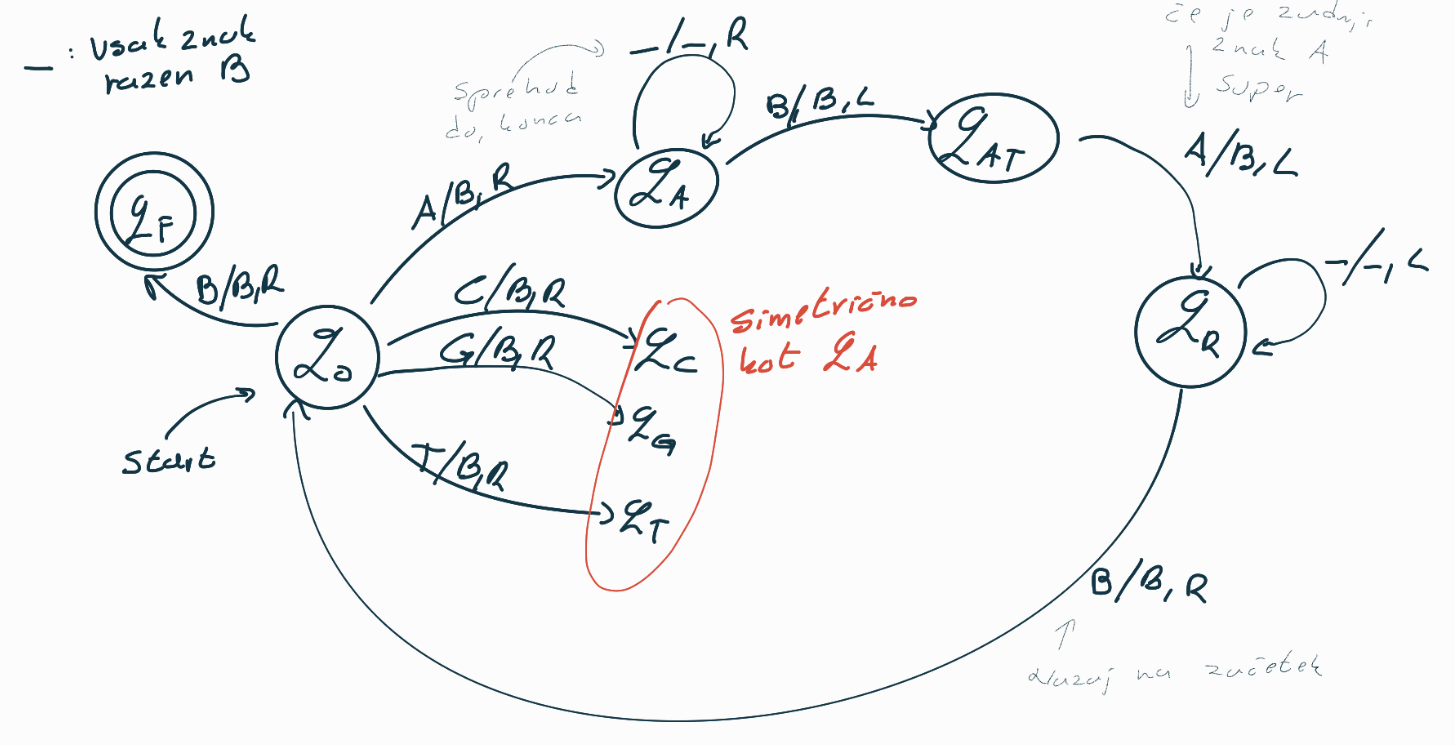 _ : Vsak znak
razen B
Sprehod
do konca
_/_, R
B/B, L
q_AT
če je zadnji
znak A
super
A/B, L
A/B, R
q_A
q_F
B/B, R
q_0
Start
C/B, R
G/B, R
T/B, R
q_C
q_G
q_T
Simetrično
kot q_A
q_R
_/_, L
B/B, R
Nazaj na začetek